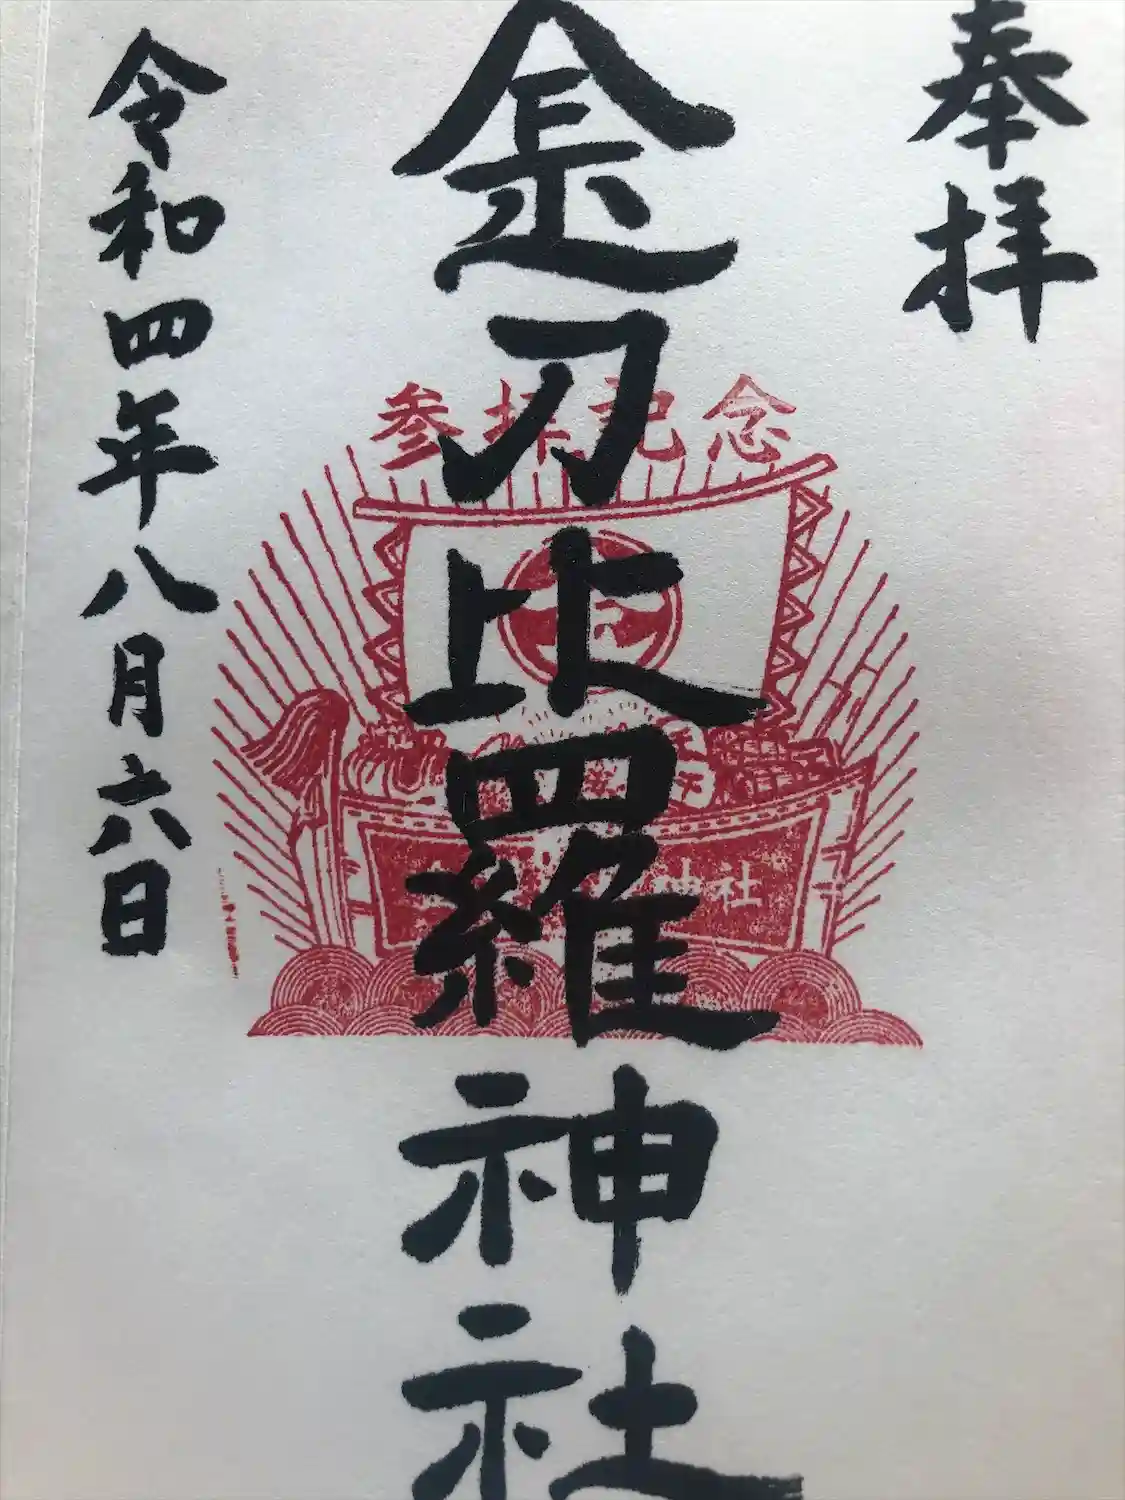 奉拝
参拝記念
金刀比羅神社
神社
令和四年八月六日